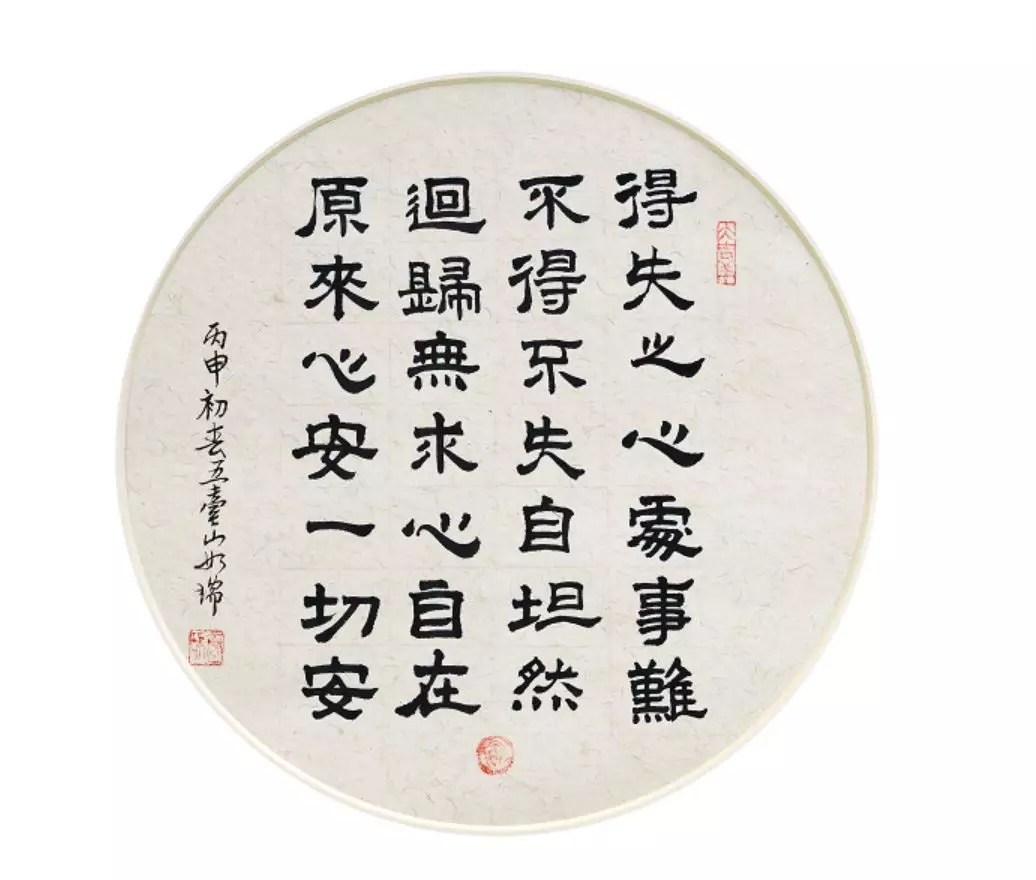 得失之心處事難
不得不失自坦然
迴歸無求心自在
原來心安一切安
丙申初春五臺山如瑞